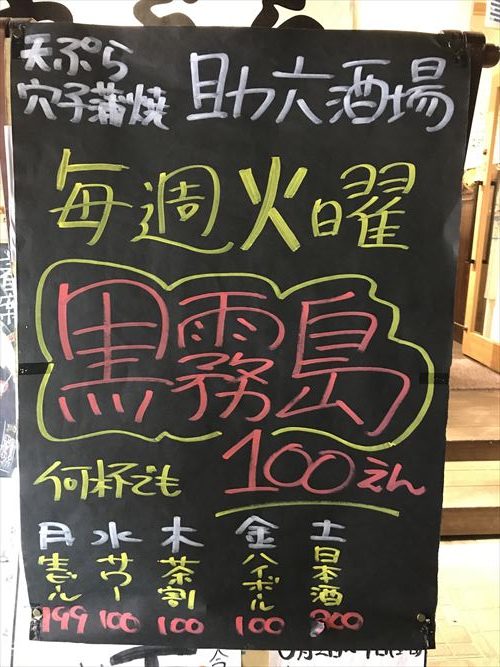 天ぷら
穴子蒲焼
助六酒場
毎週火曜
黒霧島
100えん
何杯でも
月 水 木 金 土
生ビール サワー 茶割 ハイボール 日本酒
199 100 100 100 200